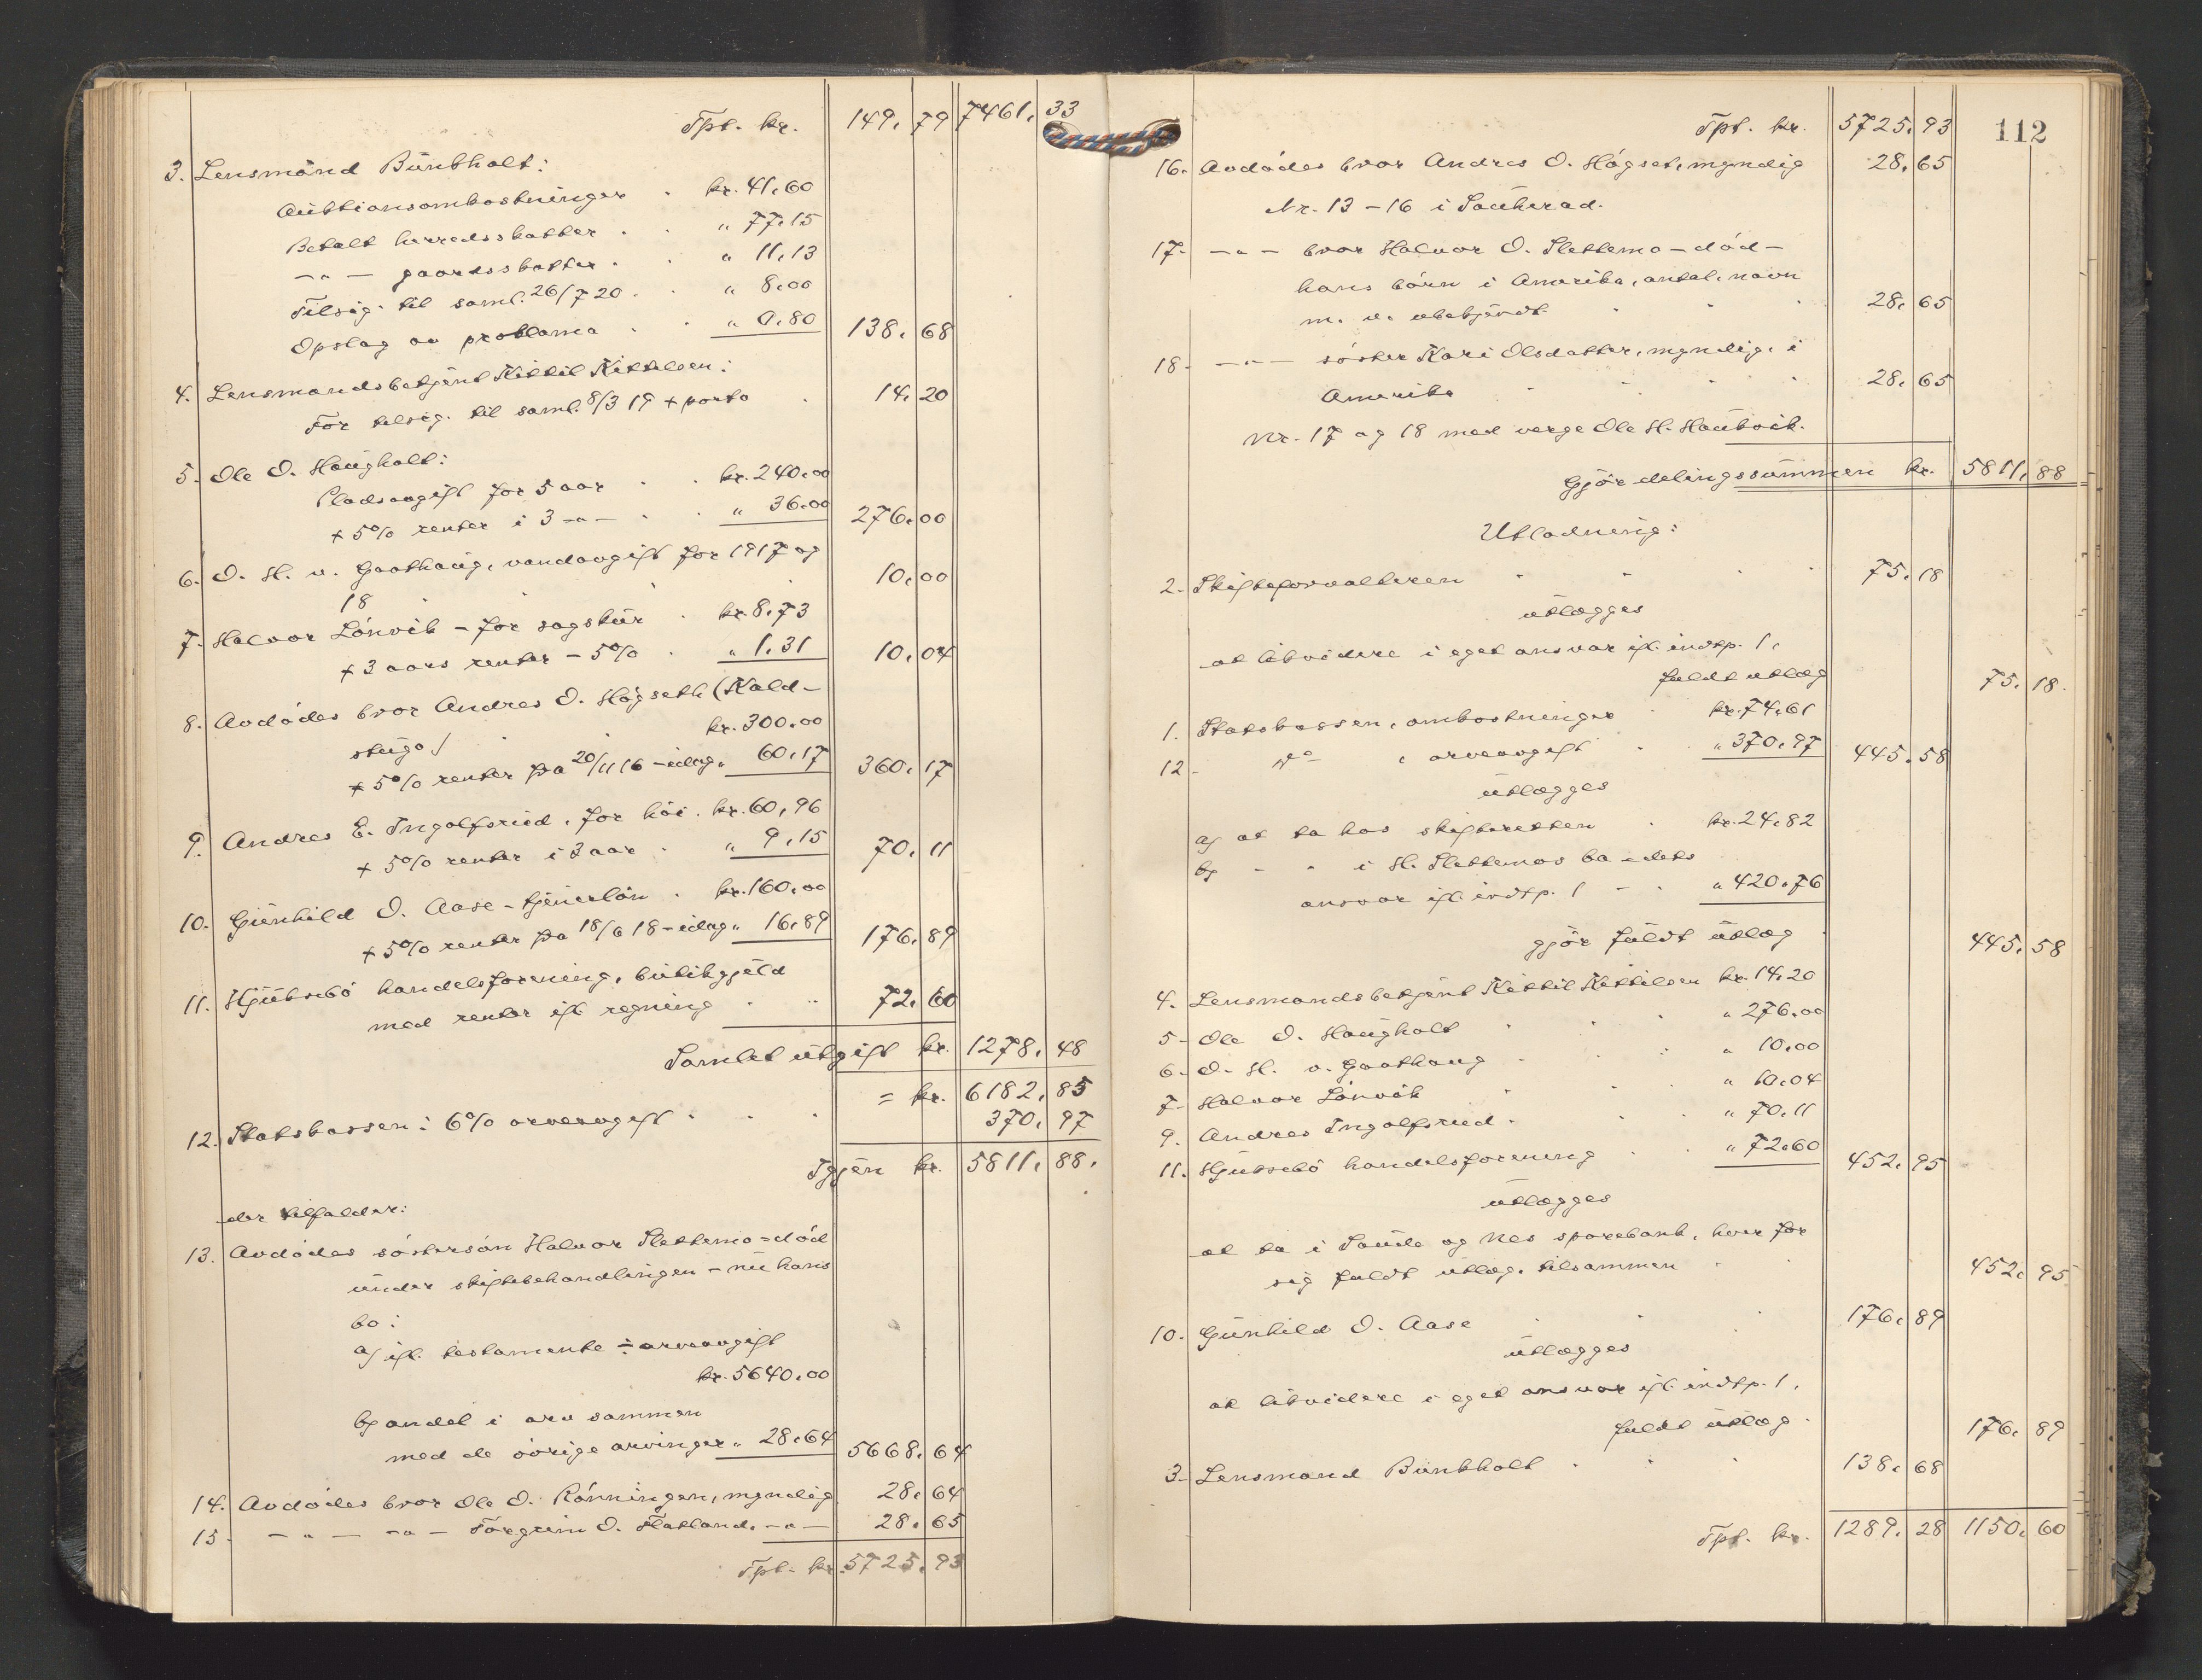 Tpt. kr. 149,79 7461,33
3. Lensmand Bunkholt:
Auktionsomkostninger . kr. 41,60
Betalt herredsskatter . . " 77,15
-"- gaardsskatter . . " 11,13
Tilsig. til saml. 26/7 20 . . " 8,00
Opslag av proklama . . " 0,80 138,68
4. Lensmandsbetjent Kittil Kittilsen:
For tilsig. til saml. 8/3 19 + porto . 14,20
5. Ole O. Haugholt:
Pladsavgift for 5 aar . . kr. 240,00
+ 5% renter i 3 -"- . . " 36,00 276,00
6. O. H. v. Gaathaug, vandavgift for 1917 og
18 . . . 10,00
7. Halvor Lönvik - for sagskur . kr. 8,73
+ 3 aars renter - 5% . " 1,31 10,04
8. Avdödes bror Andres O. Högseth (Kald-
stuga) . . kr. 300,00
+ 5% renter fra 20/11 16 - idag " 60,17 360,17
9. Andres E. Ingolfsrud, for höi . kr. 60,96
+ 5% renter i 3 aar . " 9,15 70,11
10. Gunhild O. Aase - tjenerlön . kr. 160,00
+ 5% renter fra 18/6 18 - idag " 16,89 176,89
11. Hjuksebö handelsforening, butikgjeld
med renter ifl. regning . .. 72,60
Samlet utgift kr. 1278,48
= kr. 6182,85
12. Statskassen: 6% arveavgift . . . 370,97
Igjen kr. 5811,88.
der tilfalder:
13. Avdödes söstersön Halvor Slettemo - död
under skiftebehandlingen - nu hans
bo:
a) ifl. testamente ÷ arveavgift
kr. 5640,00
b) andel i arv sammen
med de övrige arvinger " 28,64 5668,64
14. Avdödes bror Ole O. Rönningen, myndig 28,64
15. -"- -"- Torgrim O. Flatland, -"- 28,65
Tpt. kr. 5725,93
112
Tpt. kr. 5725,93
16. Avdödes bror Andres O. Högset, myndig 28,65
Nr. 13 - 16 i Sauherad.
17. -"- bror Halvor O. Slettemo - död -
hans börn i Amerika, antal, navn
m. v. ubekjendt . . . 28,65
18. -"- söster Kari Olsdatter, myndig, i
Amerika . . . . 28,65
Nr. 17 og 18 med verge Ole H. Haukvik.
Gjör delingssummen kr. 5811,88
Utlodning:
2. Skifteforvalteren . . . 75,18
utlægges
at likvidere i eget ansvar ifl. indtp. 1,
fuldt utlæg 75,18.
1. Statskassen, omkostninger . kr. 74,61
12. do , arveavgift . " 370,97 445,58
utlægges
a) at ta hos skifteretten . kr. 24,82
b) - " i H. Slettemos bo - dets
ansvar ifl. indtp. 1 - . " 420,76
gjör fuldt utlæg . 445,58
4. Lensmandsbetjent Kittil Kittilsen kr. 14,20
5. Ole O. Haugholt . . . " 276,00
6. O. H. v. Gaathaug . . " 10,00
7. Halvor Lönvik . . . " 10,04
9. Andres Ingolfsrud . . . " 70,11
11. Hjuksebö handelsforening . . " 72,60 452,95
utlægges
at ta i Saude og Nes sparebank, hver for
sig fuldt utlæg, tilsammen . 452,95
10. Gunhild O. Aase . . . 176,89
utlægges
at likvidere i eget ansvar ifl. indtp. 1,
fuldt utlæg . 176,89
3. Lensmand Bunkholt . . . 138,68
Tpt. kr. 1289,28 1150,60